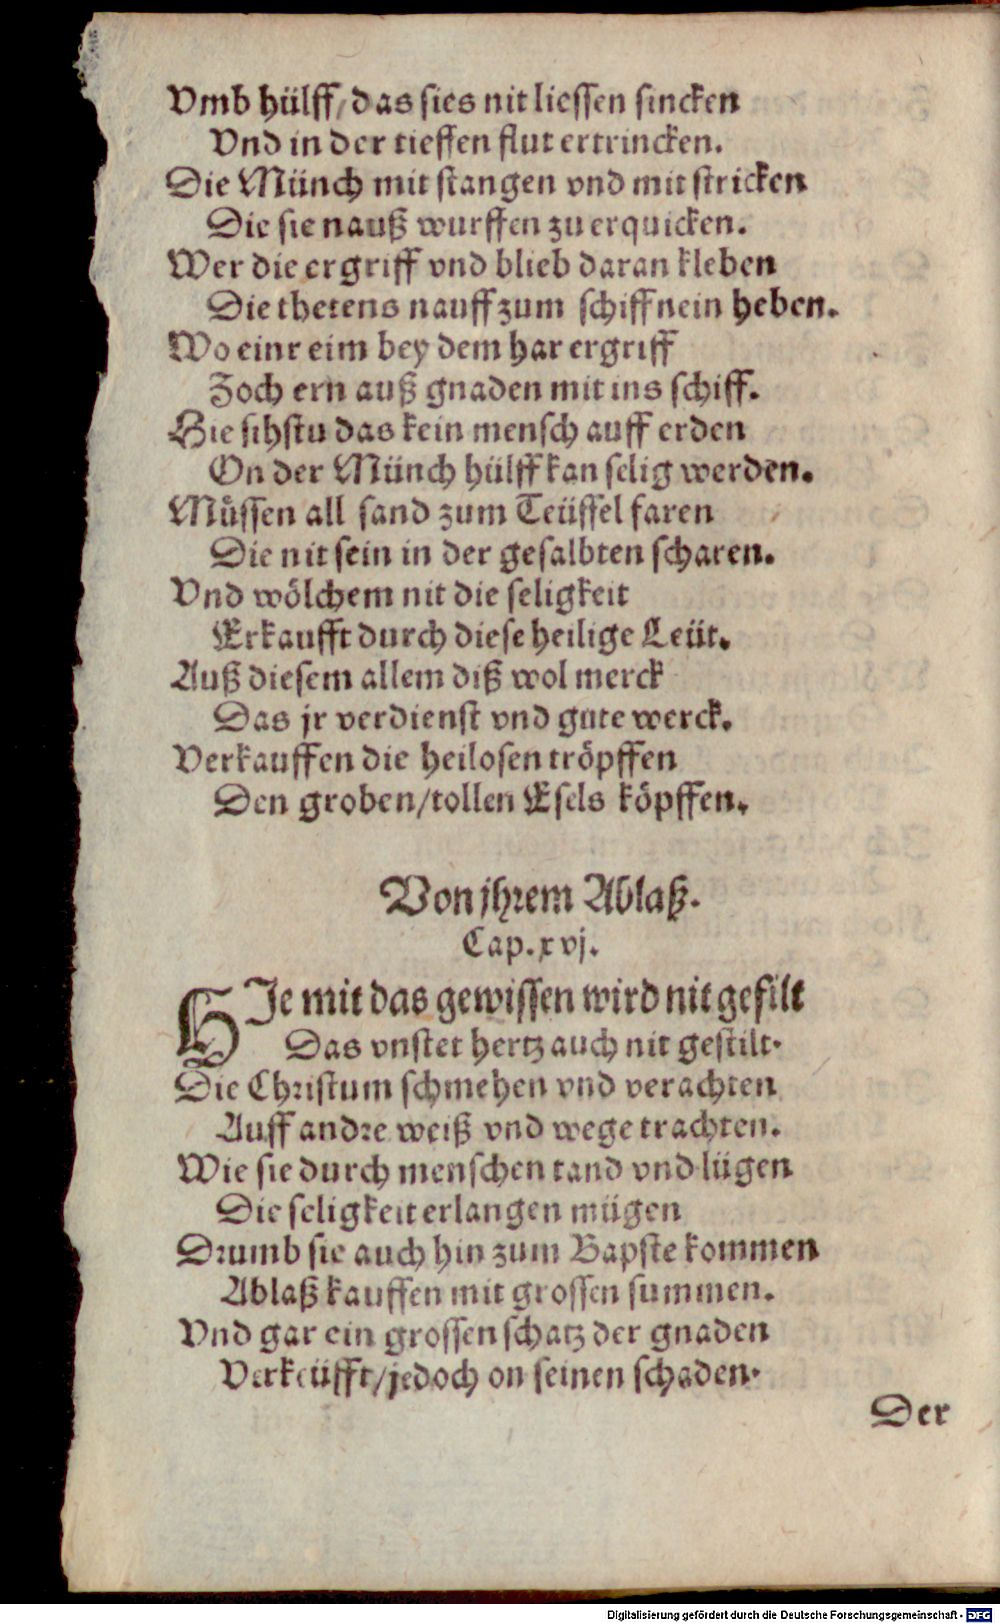 Vmb hülff/ das sies nit liessen sincken
Vnd in der tieffen flut ertrincken.
Die Münch mit stangen vnd mit stricken
Die sie nauß wurffen zu erquicken.
Wer die ergriff vnd blieb daran kleben
Die thetens nauff zum schiff nein heben.
Wo einr eim bey dem har ergriff
Zoch ern auß gnaden mit ins schiff.
Hie sihstu das kein mensch auff erden
On der Münch hülff kan selig werden.
Müssen all sand zum Teüffel faren
Die nit sein in der gesalbten scharen.
Vnd wölchem nit die seligkeit
Erkaufft durch diese heilige Leüt.
Auß diesem allem diß wol merck
Das jr verdienst vnd gute werck.
Verkauffen die heilosen tröpffen
Den groben/tollen Esels köpffen.
Von jhrem Ablaß.
Cap. xvj.
HIe mit das gewissen wird nit gefilt
Das vnstet hertz auch nit gestilt.
Die Christum schmehen vnd verachten
Auff andre weiß vnd wege trachten.
Wie sie durch menschen tand vnd lügen
Die seligkeit erlangen mügen
Drumb sie auch hin zum Bapste kommen
Ablaß kauffen mit grossen summen.
Vnd gar ein grossen schatz der gnaden
Verkeüfft/jedoch on seinen schaden.
Der
Digitalisierung gefördert durch die Deutsche Forschungsgemeinschaft - DFG